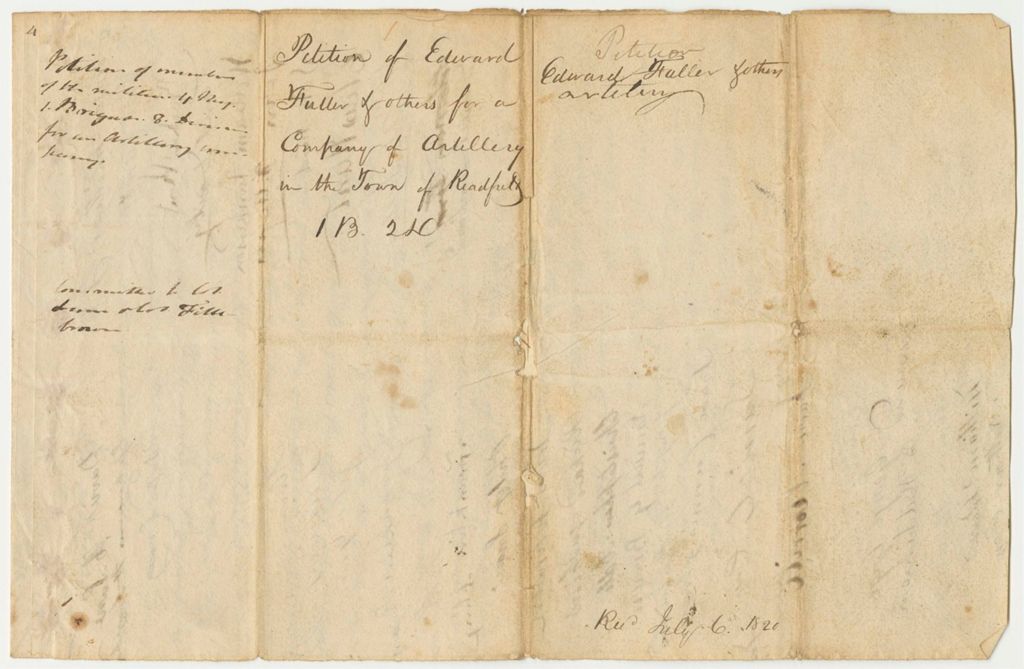 4
Petition of members
of the militia 4 Reg.
1. Brigade. 8. Division
for an Artillery com-
pany.
Committee to Col
Col Fille-
brown
Petition of Edward
Fuller & others for a
Company of Artillery
in the Town of Readfield
1 B. 2 D
Petition
Edward Fuller & others
artillery
Rec'd July 6. 1820